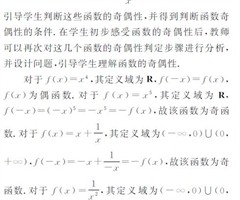 x
引导学生判断这些函数的奇偶性,并得到判断函数奇
偶性的条件.在学生初步感受函数的奇偶性后,教师
可以再次对这几个函数的奇偶性判定步骤进行分析,
并设计问题,引导学生理解函数的奇偶性.
对于 f(x)=x⁴,其定义域为 R,f(-x)=f(x),
f(x)为偶函数.对于 f(x)=x⁵,其定义域为 R,
f(-x)=(-x)⁵=-x⁵=-f(x),故该函数为奇函
数.对于 f(x)=x+1/x,其定义域为(-∞,0)∪(0,
+∞),f(-x)=-x+1/-x=-f(x),故该函数为奇
函数.对于 f(x)=1/x²,其定义域为(-∞,0)∪(0,